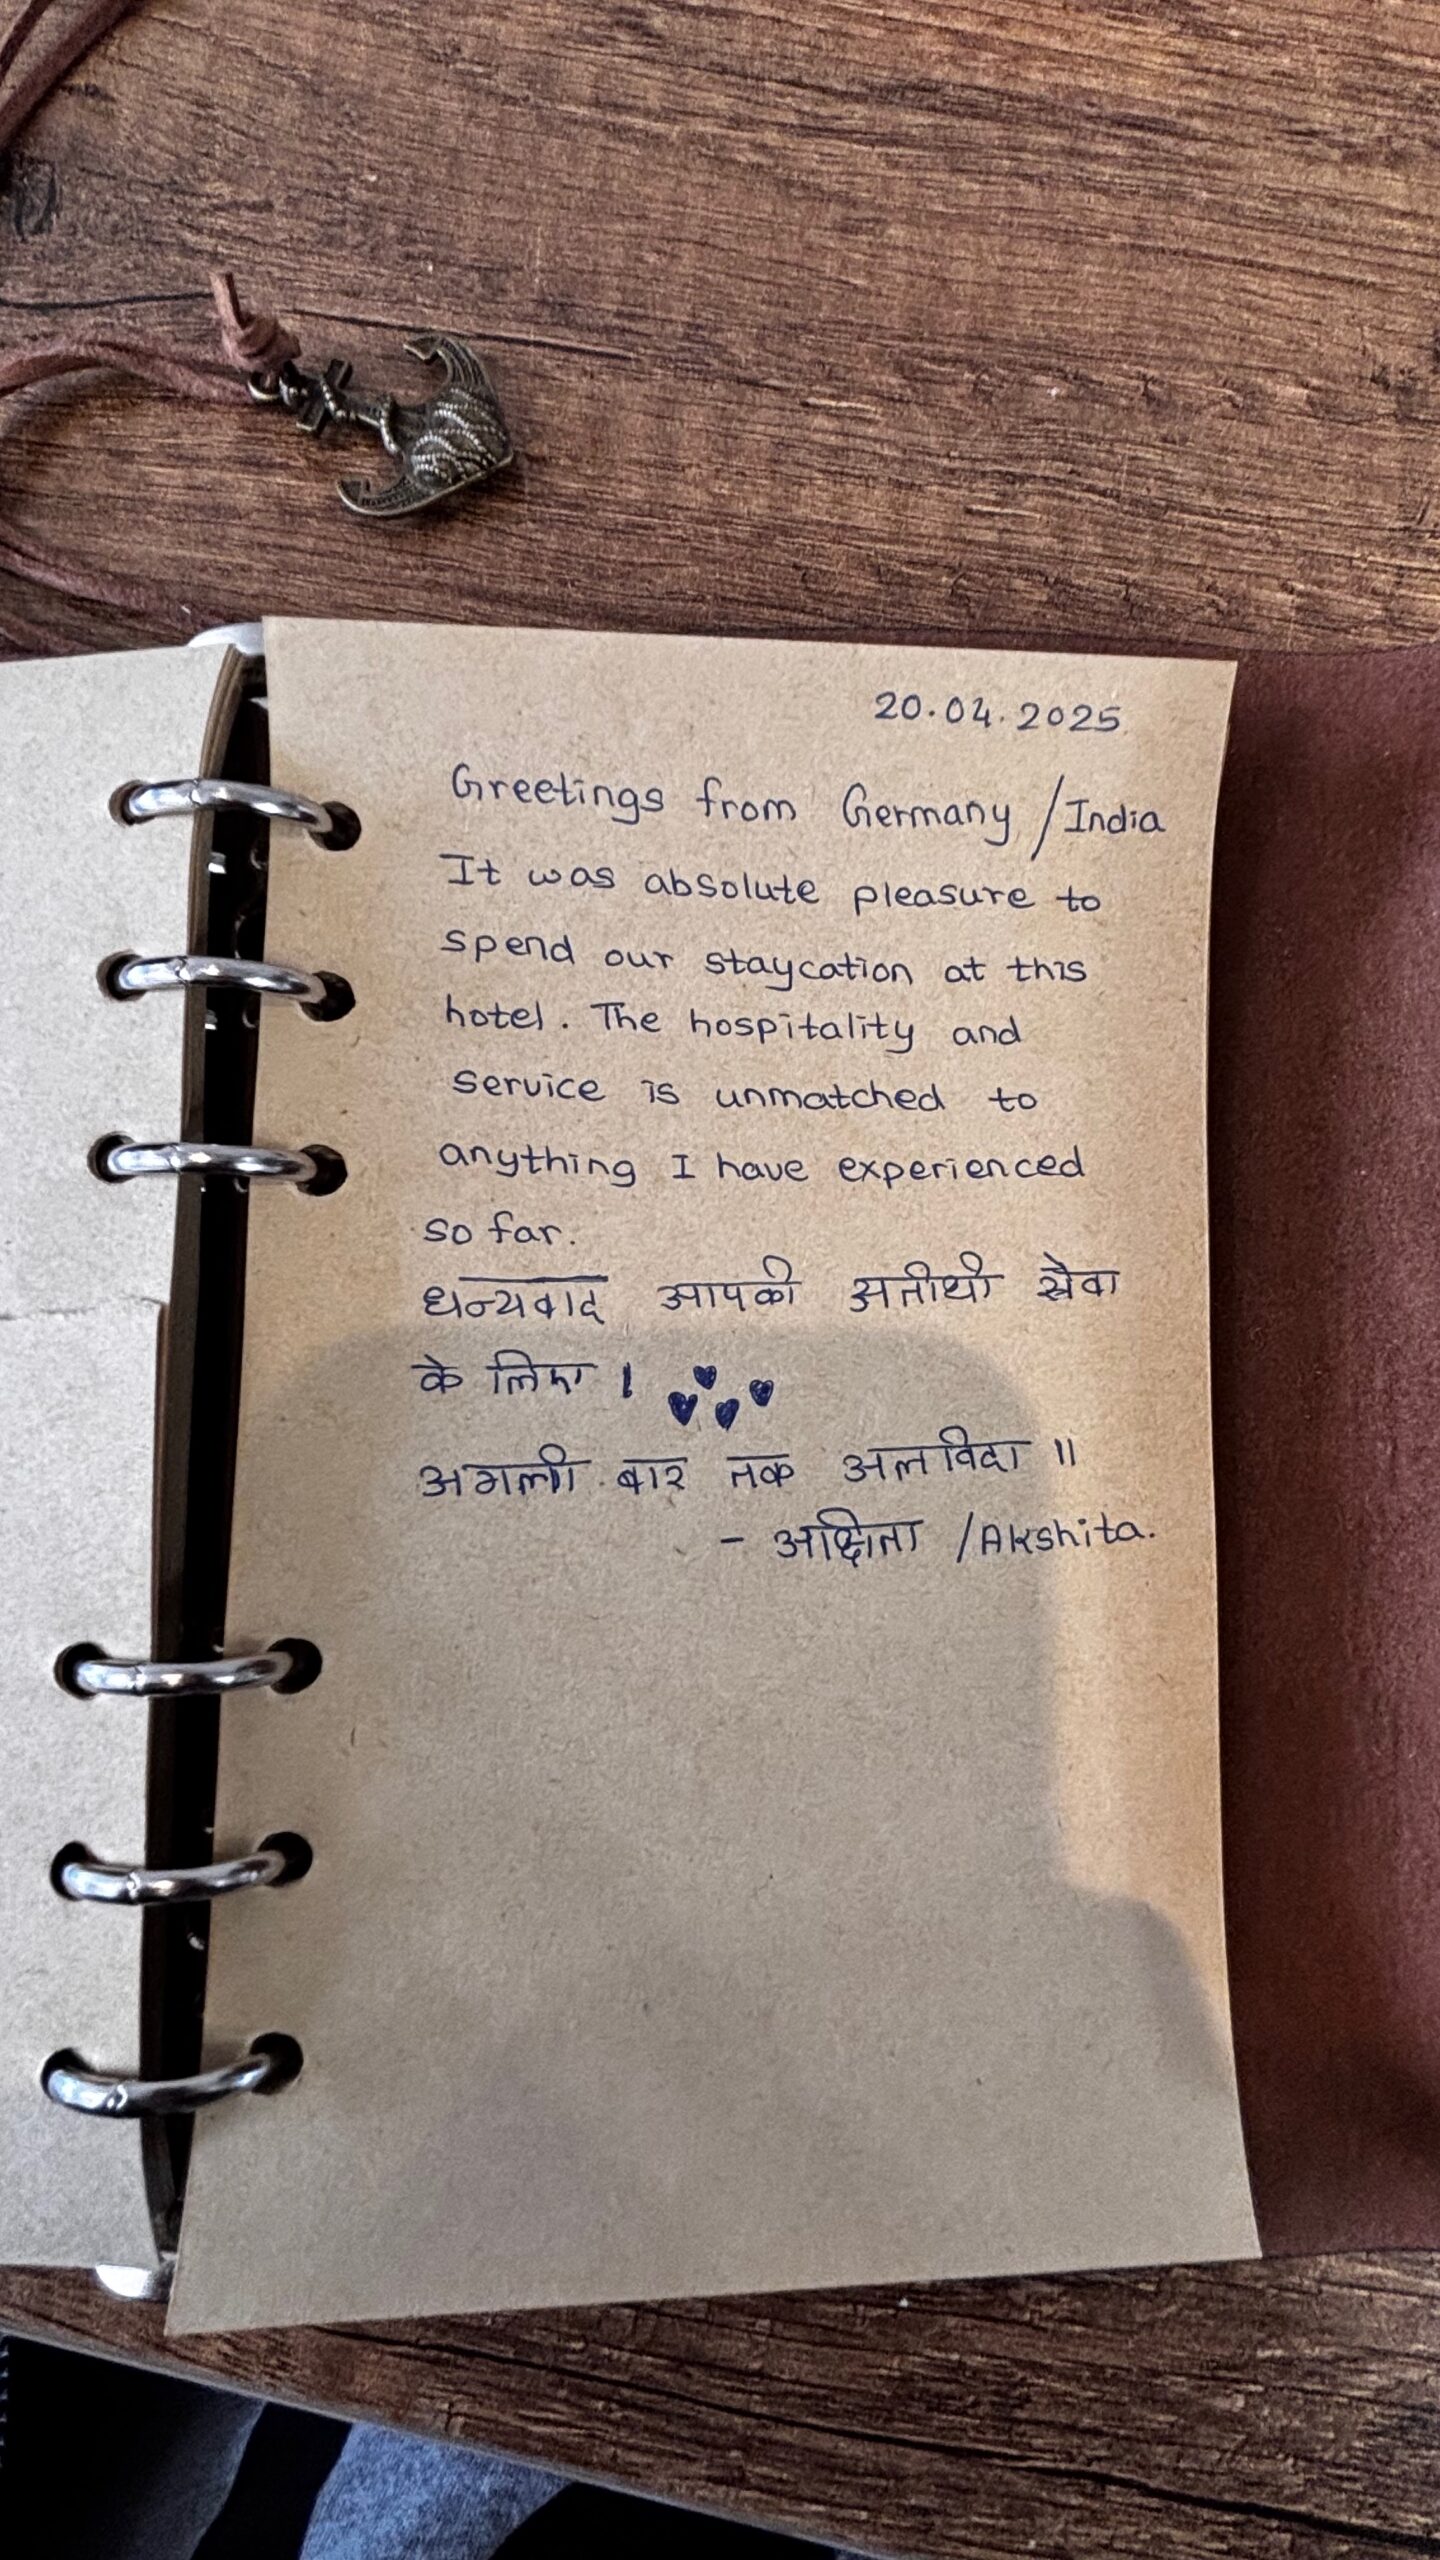 20.04.2025
Greetings from Germany / India
It was absolute pleasure to
spend our staycation at this
hotel. The hospitality and
service is unmatched to
anything I have experienced
so far.
धन्यवाद आपकी अतीथी सेवा
के लिए ।
अगली बार तक अलविदा ॥
- अक्षिता / Akshita.